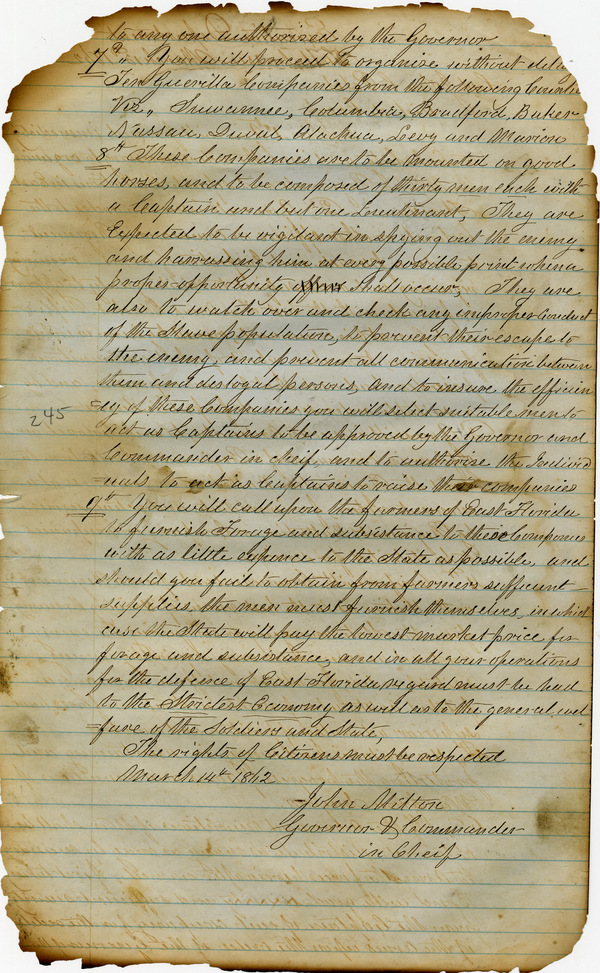 to any one authorised by the Governor
7th " You will proceed to organise without dela
Ten Guerilla Companies from the following Counties
Viz, Suwannee, Columbia, Bradford, Baker
Nassau, Duval, Alachua, Levy and Marion
8th These Companies are to be mounted on good
horses, and to be composed of thirty men each with
a Captain and but one Lieutenant, They are
Expected to be vigilant in spying out the enemy
and harrassing him at every possible point when a
proper opportunity shall occur, They are
also to watch over and check any improper Conduct
of the Slave population, to prevent their escape to
the enemy, and prevent all communication between
them and disloyal persons, and to insure the efficien
245
=cy of these Companies you will select suitable men to
act as Captains to be approved by the Governor and
Commander in cheif, and to authorise the Individ
=uals to act as Captains to raise their companies
9th You will call upon the farmers of East Florida
to furnish Forage and subsistance to these Companies
with as little expence to the State as possible, and
should you fail to obtain from farmers sufficient
supplies the men must furnish themselves, in which
case the State will pay the lowest market price for
forage and subsistance, and in all your operations
for the defence of East Florida, regard must be had
to the Strictest Economy as well as to the general wel
=fare of the Soldiers and State,
The rights of Citizens must be respected
March 14th 1862
John Milton
Governor & Commander
in Cheif